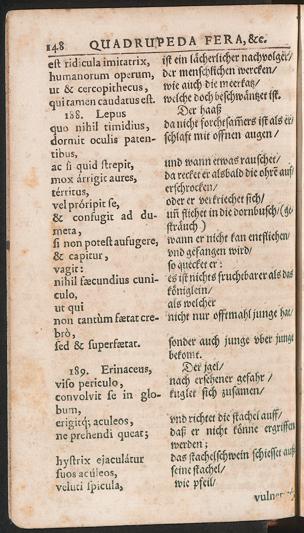 148 QUADRUPEDA FERA, &c.
est ridicula imitatrix, ist ein lächerlicher nachvolger/
humanorum operum, der menschlichen wercken/
ut & cercopithecus, wie auch die meerkatz/
qui tamen caudatus est. welche doch beschwäntzet ist.
188. Lepus Der haaß
quo nihil timidius, da nicht forchtsamers ist als er/
dormit oculis paten- schlaft mit offnen augen/
tibus,
ac si quid strepit, und wann etwas rauschet/
mox arrigit aures, da recket er alsbald die ohrē auf/
térritus, erschrocken/
vel próripit se, oder er verkriechet sich/
& confugit ad du- uñ fliehet in die dornbusch/(ge-
meta, sträuch)
si non potest aufugere, wann er nicht kan entfliehen/
& capitur, vnd gefangen wird/
vagit: so quecket er:
nihil fœcundius cuni- es ist nichts fruchtbarer als das
culo, königlein/
ut qui als welcher
non tantùm fœtat cre- nicht nur offtmahl junge hat/
brò,
sed & superfœtat. sonder auch junge vber junge
bekomt.
189. Erinaceus, Der jgel/
viso periculo, nach ersehener gefahr/
convolvit se in glo- kuglet sich zusamen/
bum,
erigitq; aculeos, vnd richtet die stachel auff/
ne prehendi queat; daß er nicht könne ergriffen
werden;
hystrix ejaculátur das stachelschwein schiesset auß
suos aculeos, seine stachel/
veluti spicula, wie pfeil/